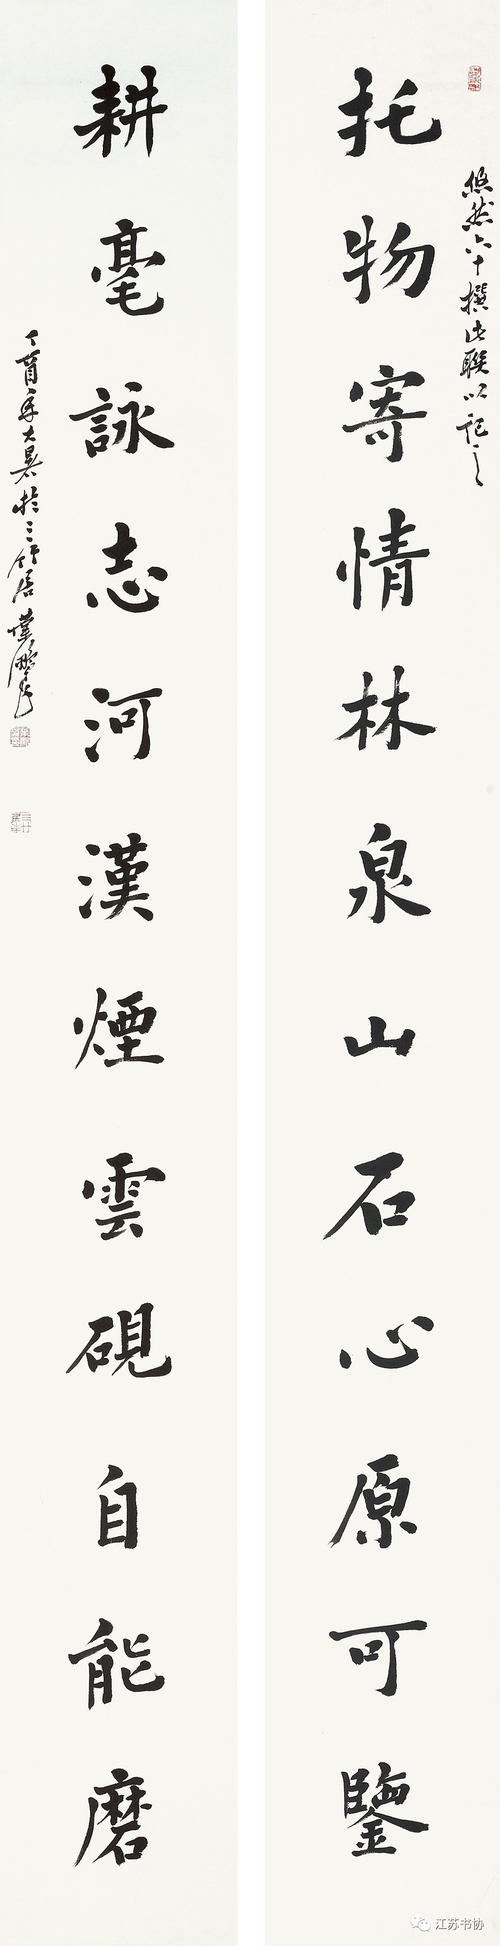 悠然六十撰此聯以記之
托物寄情林泉山石心原可鑒
耕毫詠志河漢煙雲硯自能磨
丁酉年大暑於三竹居漢
江苏书协